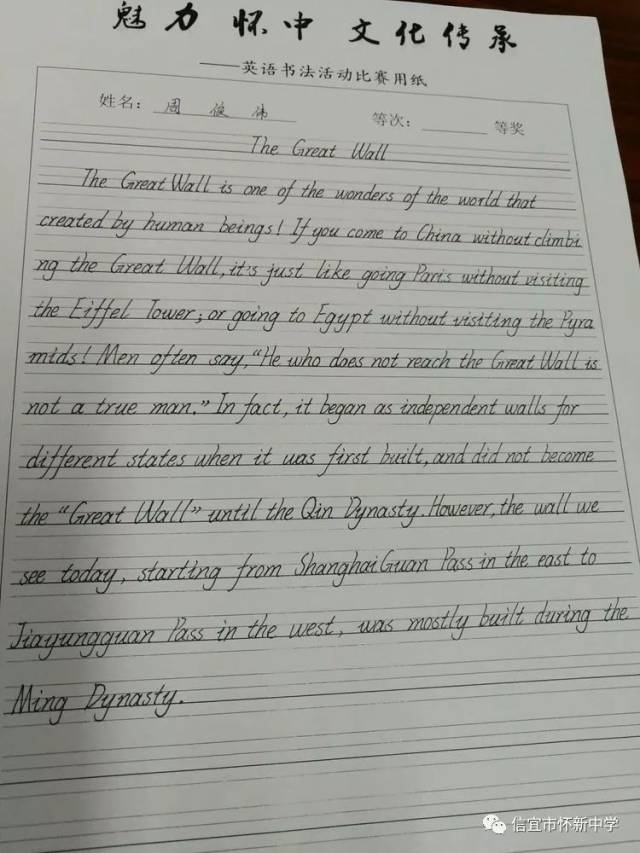 魅力 怀中 文化传承
——英语书法活动比赛用纸
姓名： 周俊伟 等次：______ 等奖
The Great Wall
The Great Wall is one of the wonders of the world that
created by human beings! If you come to China without climbi
ng the Great Wall, it's just like going Paris without visiting
the Eiffel Tower; or going to Egypt without visiting the Pyra
mids! Men often say, "He who does not reach the Great Wall is
not a true man." In fact, it began as independent walls for
different states when it was first built, and did not become
the "Great Wall" until the Qin Dynasty. However, the wall we
see today, starting from Shanghai Guan Pass in the east to
Jiayungguan Pass in the west, was mostly built during the
Ming Dynasty.
信宜市怀新中学